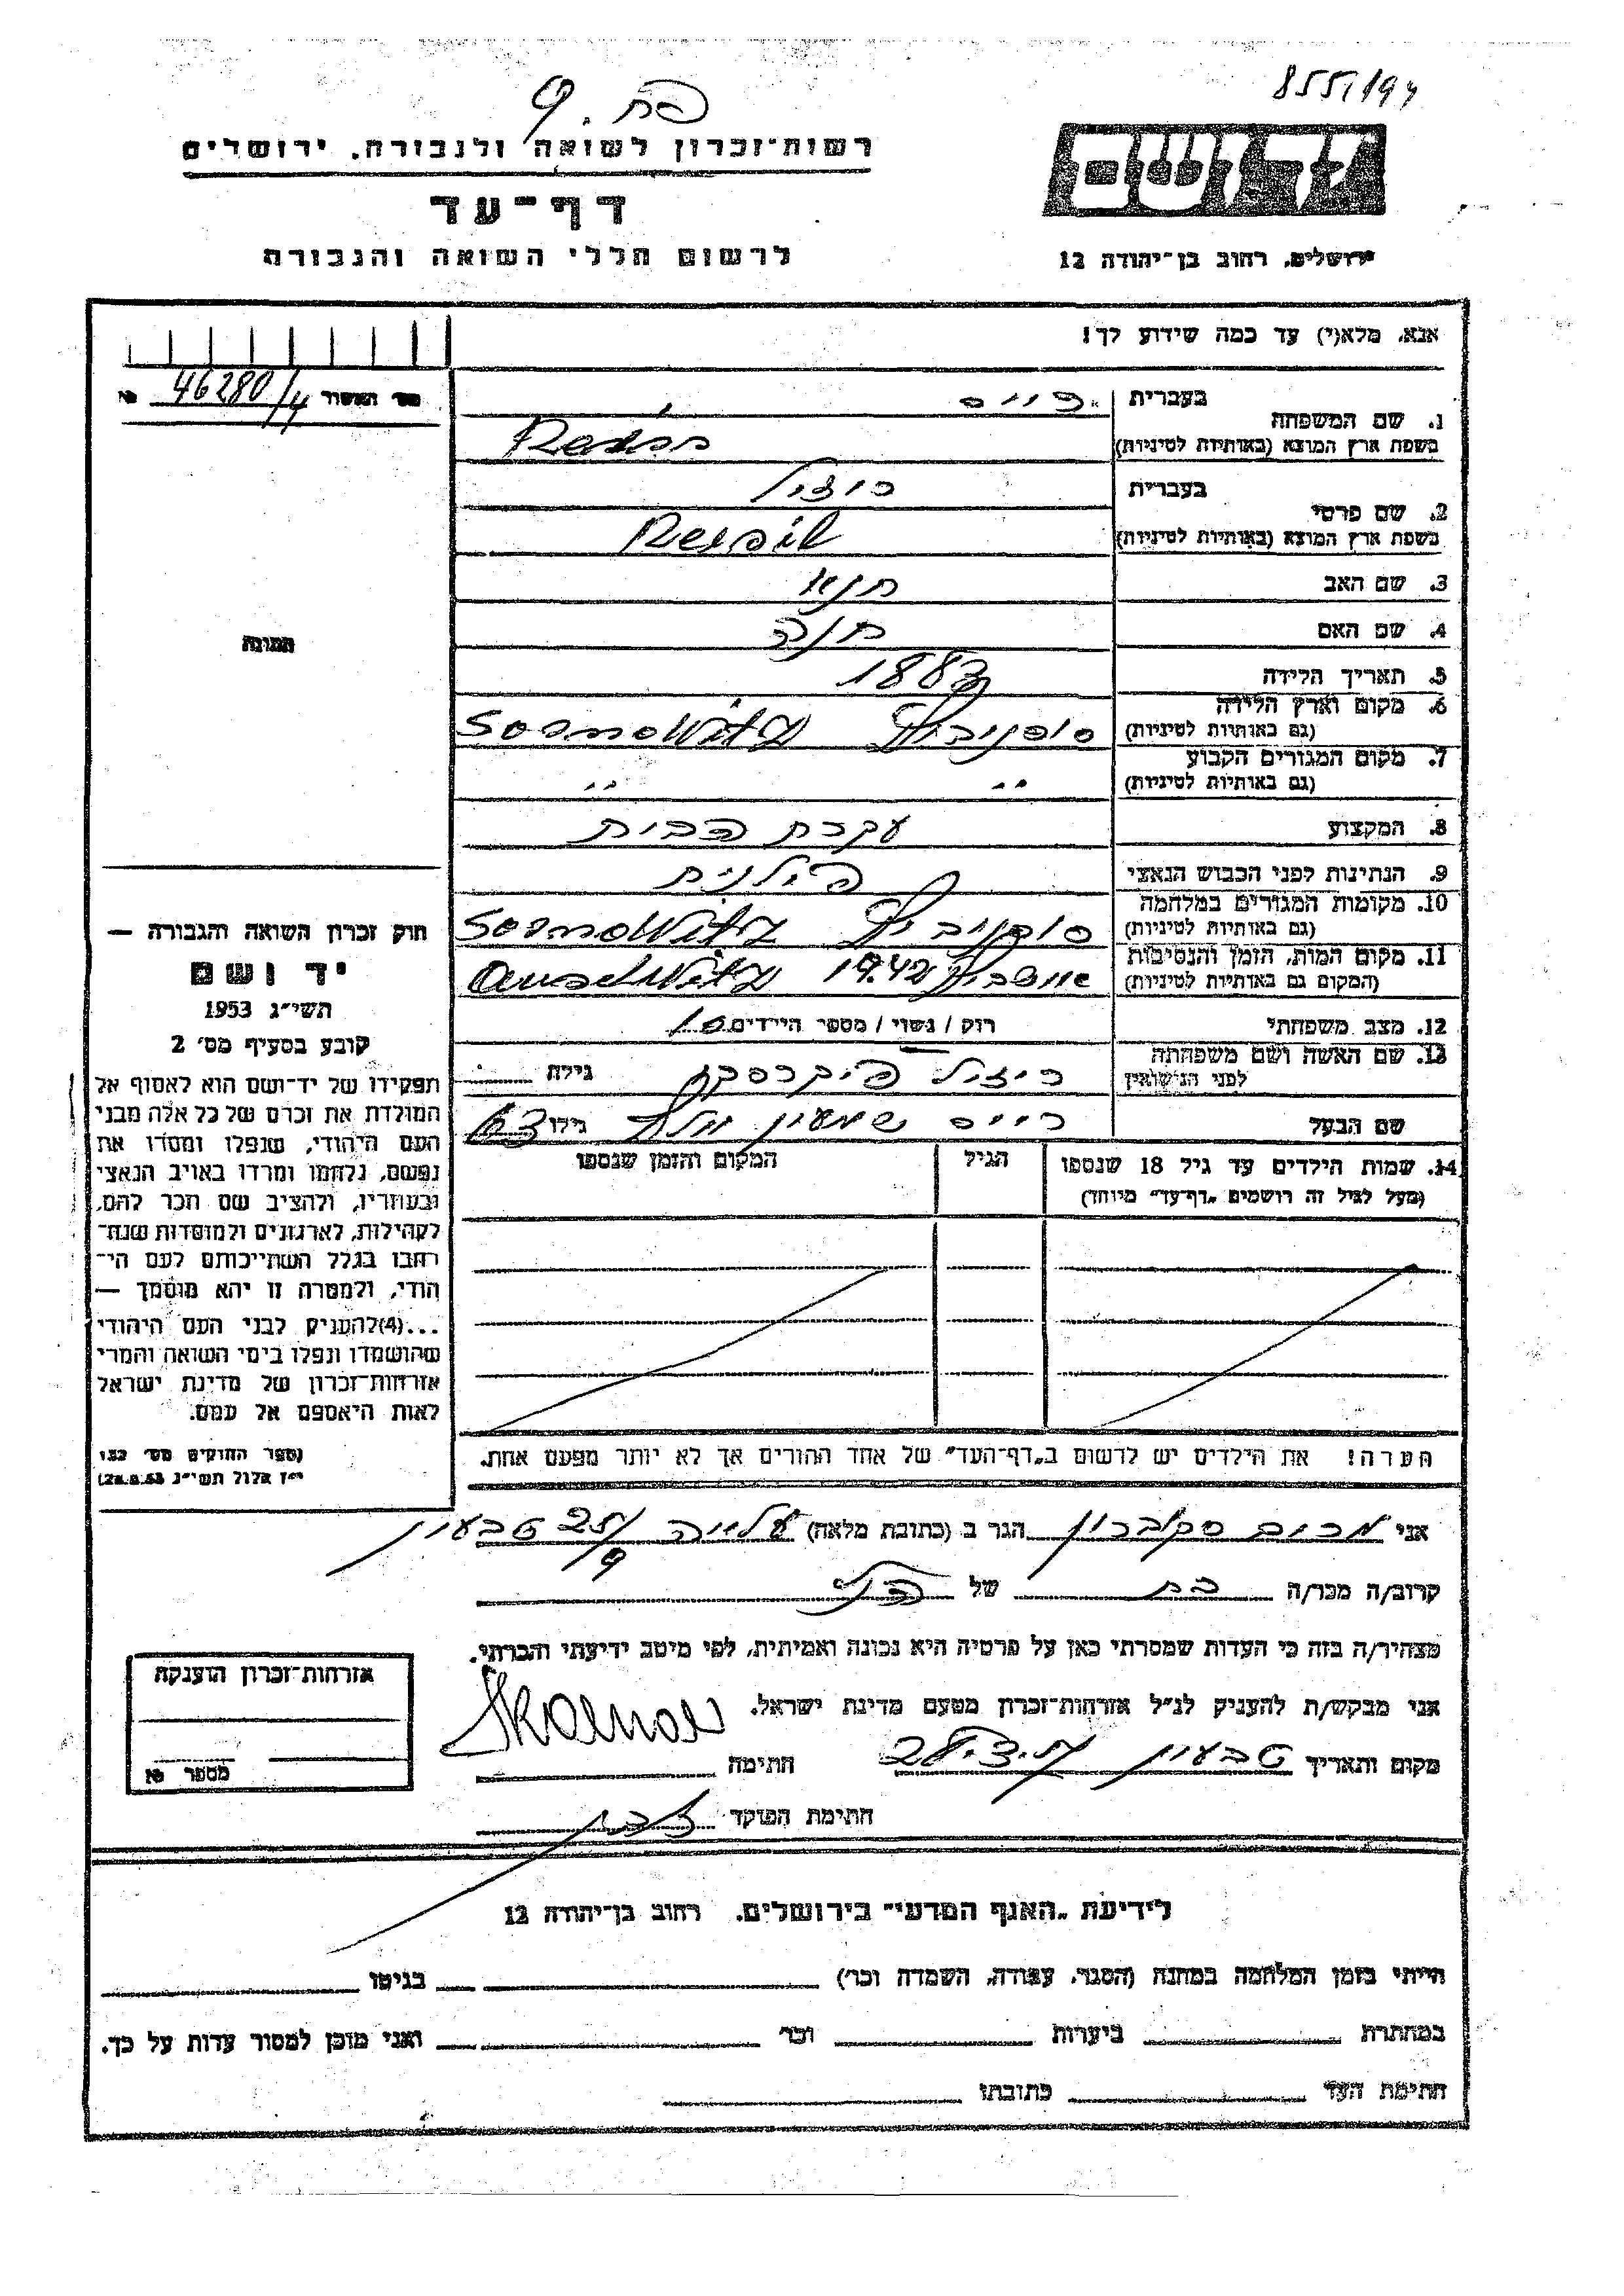 855/194
רשות-זכרון לשואה ולגבורה, ירושלים
דף-עד
לרשום חללי השואה והגבורה
ירושלים, רחוב בן-יהודה 12
אנא, מלא(י) עד כמה שידוע לך!
מס' האשור 46280/4 №
1. שם המשפחה
בעברית
בשפת ארץ המוצא (באותיות לטיניות)
2. שם פרטי
בעברית
בשפת ארץ המוצא (באותיות לטיניות)
3. שם האב
4. שם האם חנה
5. תאריך הלידה 1883
6. מקום וארץ הלידה
(גם באותיות לטיניות) סוסנוביץ SosnoWitz
7. מקום המגורים הקבוע
(גם באותיות לטיניות) " "
8. המקצוע עקרת הבית
9. הנתינות לפני הכבוש הנאצי פולנית
10. מקומות המגורים במלחמה
(גם באותיות לטיניות) סוסנוביץ SosnoWitz
11. מקום המות, הזמן והנסיבות
(המקום גם באותיות לטיניות) 1942
12. מצב משפחתי רוק / נשוי / מספר הילדים 10
13. שם האשה ושם משפחתה
לפני הנישואין גילה
שם הבעל גילו 63
14. שמות הילדים עד גיל 18 שנספו
(מעל לגיל זה רושמים "דף-עד" מיוחד)
הגיל
המקום והזמן שנספו
הערה! את הילדים יש לרשום ב"דף-העד" של אחד ההורים אך לא יותר מפעם אחת.
תמונה
חוק זכרון השואה והגבורה —
יד ושם
תשי"ג 1953
קובע בסעיף מס' 2
תפקידו של יד-ושם הוא לאסוף אל
המולדת את זכרם של כל אלה מבני
העם היהודי, שנפלו ומסרו את
נפשם, נלחמו ומרדו באויב הנאצי
ובעוזריו, ולהציב שם וזכר להם,
לקהילות, לארגונים ולמוסדות שנח-
רבו בגלל השתייכותם לעם הי-
הודי, ולמטרה זו יהא מוסמך —
...(4)להעניק לבני העם היהודי
שהושמדו ונפלו בימי השואה והמרי
אזרחות-זכרון של מדינת ישראל
לאות היאספם אל עמם.
(ספר החוקים מס' 132
י"ז אלול תשי"ג 28.8.53)
אני הגר ב (כתובת מלאה) טבעון
קרוב/ה מכר/ה בת של הנ"ל
מצהיר/ה בזה כי העדות שמסרתי כאן על פרטיה היא נכונה ואמיתית, לפי מיטב ידיעתי והכרתי.
אני מבקש/ת להעניק לנ"ל אזרחות-זכרון מטעם מדינת ישראל.
מקום ותאריך טבעון חתימה
חתימת הפוקד
אזרחות-זכרון הוענקה
מספר №
לידיעת "האגף המדעי" בירושלים, רחוב בן-יהודה 12
הייתי בזמן המלחמה במחנה (הסגר, עבודה, השמדה וכר') בגיטו
במחתרת ביערות וכר' ואני מוכן למסור עדות על כך.
חתימת העד כתובתו